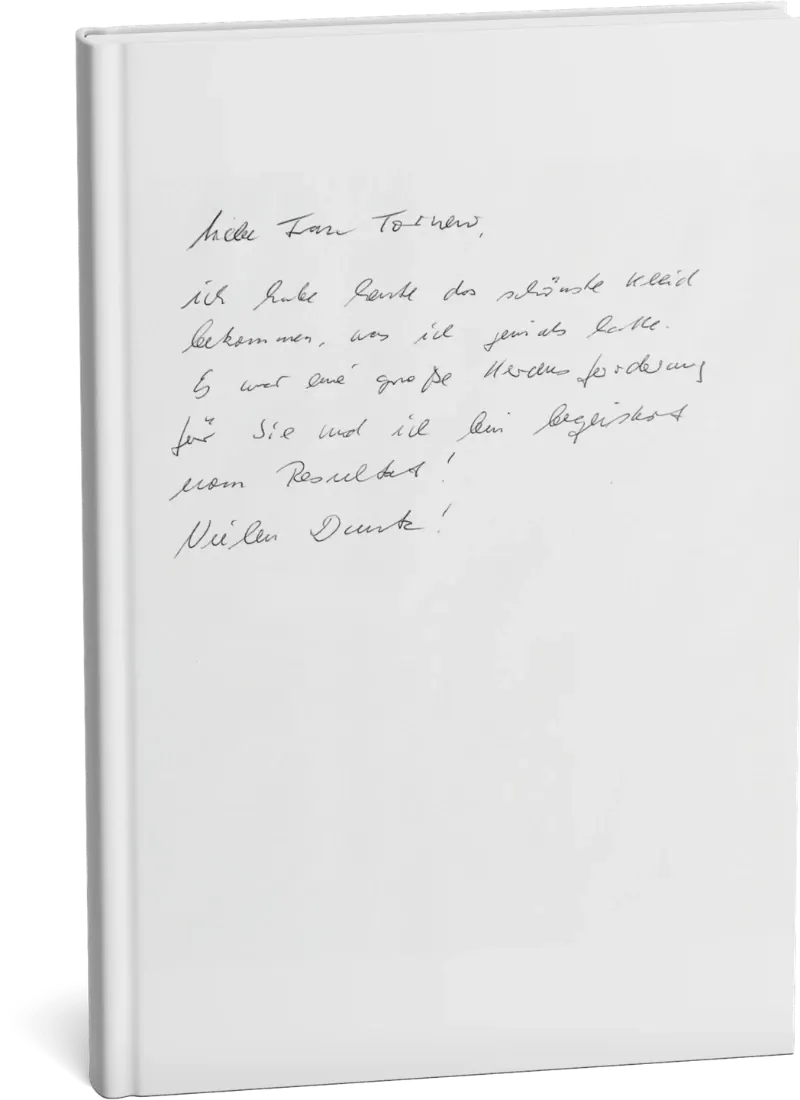 liebe Frau Tornow,
ich habe heute das schönste Kleid
bekommen, was ich jemals hatte.
Es war eine große Herausforderung
für Sie und ich bin begeistert
vom Resultat!
Vielen Dank!